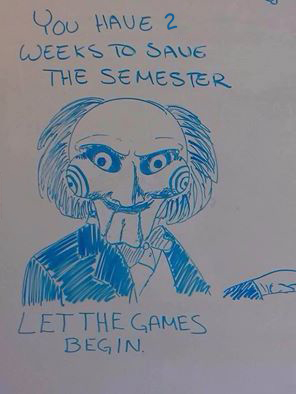 YOU HAVE 2
WEEKS TO SAVE
THE SEMESTER
LET THE GAMES
BEGIN.